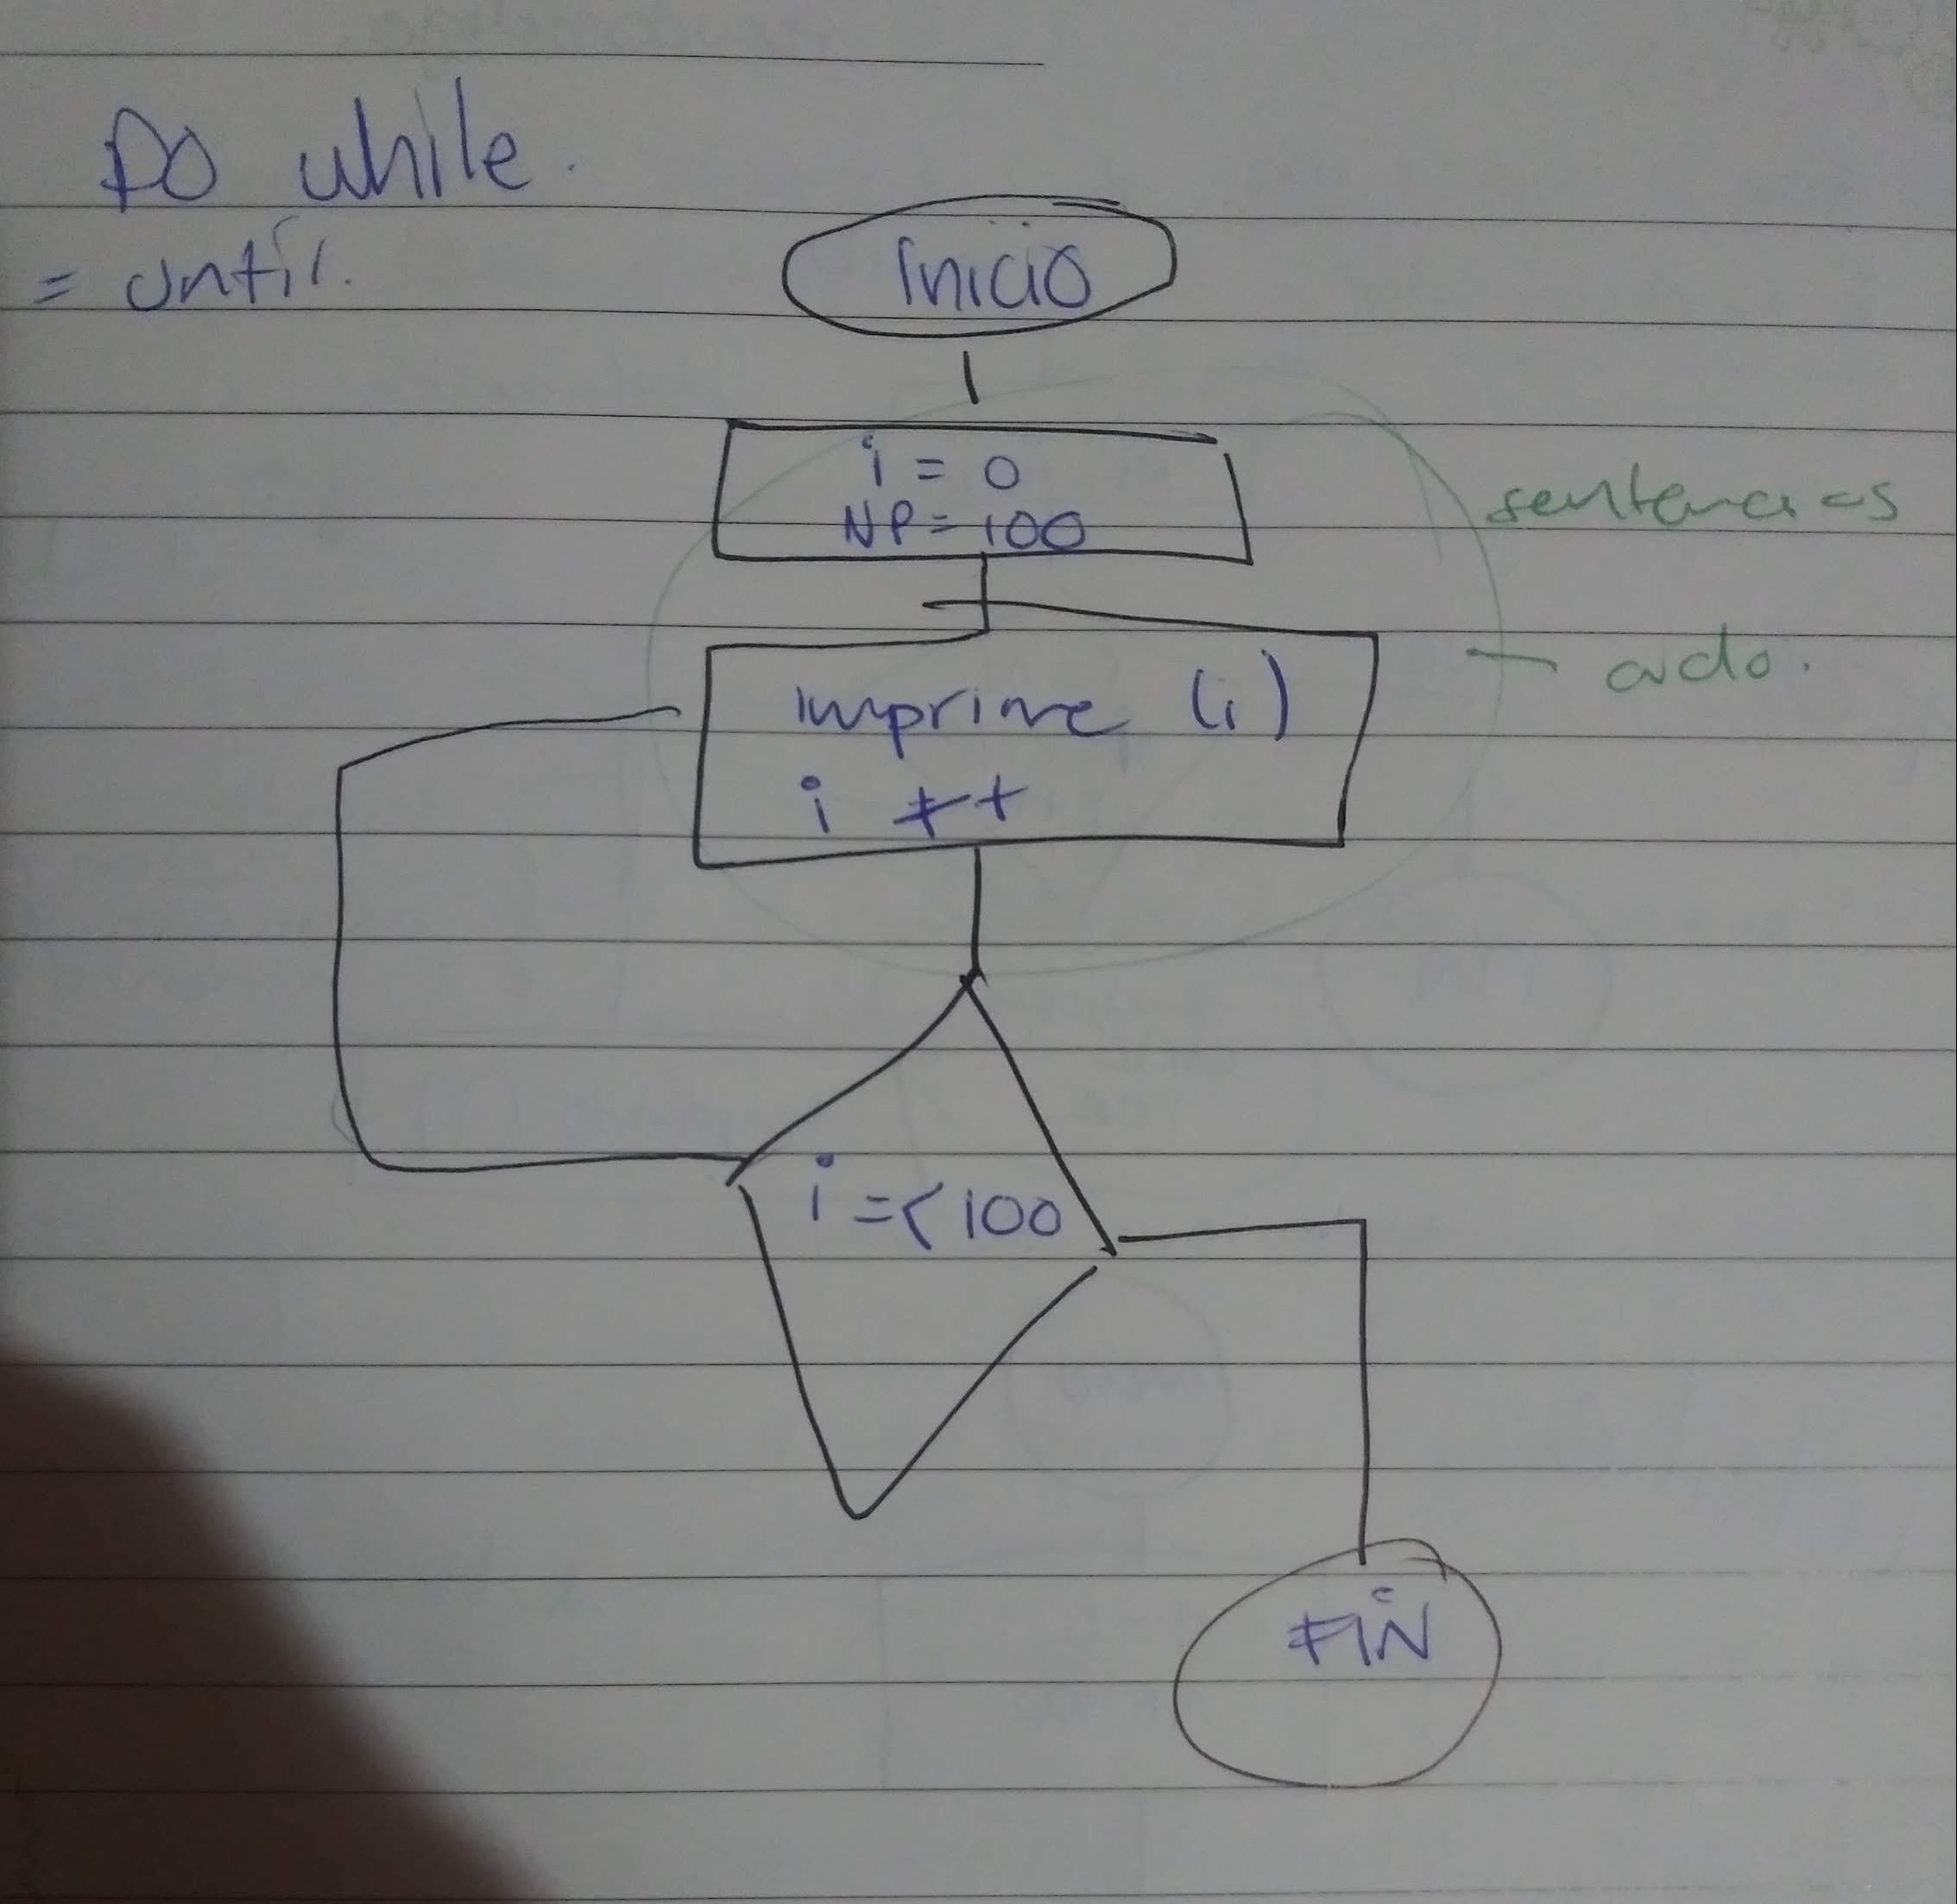 DO while.
= until.
Inicio
i = 0
NP = 100
sentencias
imprime (i)
i ++
i =< 100
FIN